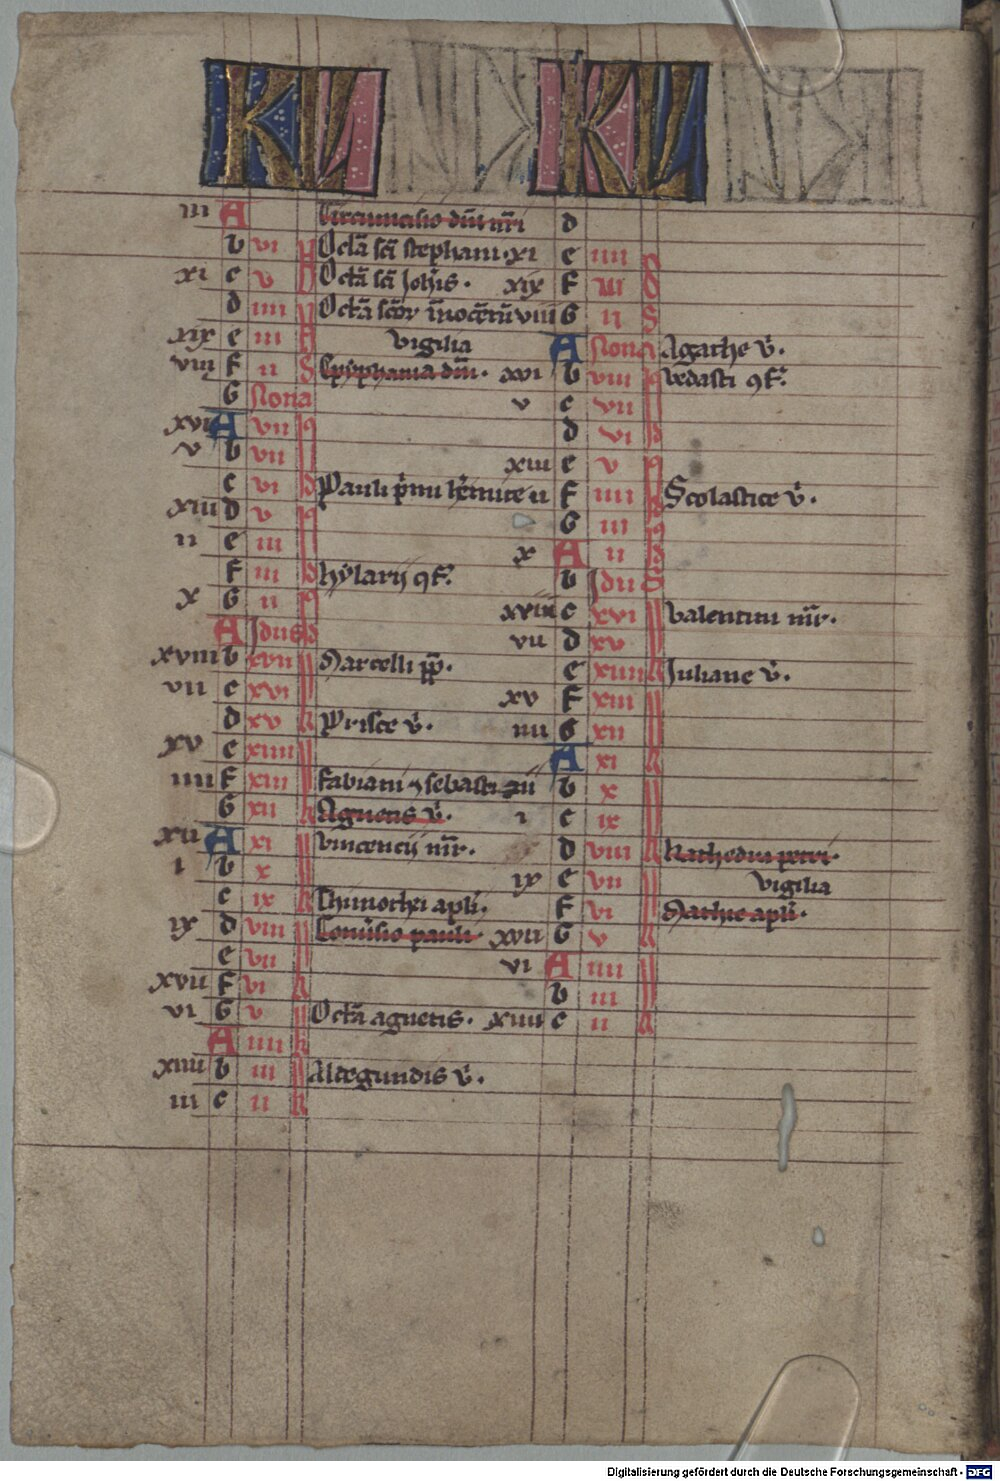 KL
iii A Circumcisio dn̄i nr̄i
b vi N Octā sc̄i stephani.
xi c v Octā sc̄i Joh̄is.
d iiii Octā sc̄or īnocētū
xix e iii vigilia
viii f ii Epyphania dn̄i.
G Nona
xvi A viii
v b vii
c vi Pauli p̄mi h̄emite
xiii d v
ii e iiii
f iii hylarij ꝯf.
x G ii
A Idus
xviii b xvii Marcelli pp̄.
vii c xvi
d xv Prisce v̄.
xv e xiiii
iiii f xiii fabiani ⁊ sebastiani
G xii Agnetis v̄.
xii A xi vincencii mr̄.
i b x
c ix Thimothei apl̄i.
ix d viii Conu̅sio pauli.
e vii
xvii f vi
vi G v Octā agnetis.
A iiii
xiiii b iii Aldegundis v̄.
iii c ii
KL
d
xi e iiii
xix f iii
viii G ii
A Nona Agathe v̄.
xvi b viii vedasti ꝯf.
v c vii
d vi
xiii e v
ii f iiii Scolastice v̄.
G iii
x A ii
b Idus
xviii c xvi valentini mr̄.
vii d xv
e xiiii Juliane v̄.
xv f xiii
iiii G xii
A xi
b x
i c ix
d viii Kathedra petri.
ix e vii vigilia
f vi Mathie apl̄i.
xvii G v
vi A iiii
b iii
xiiii c ii
Digitalisierung gefördert durch die Deutsche Forschungsgemeinschaft - DFG